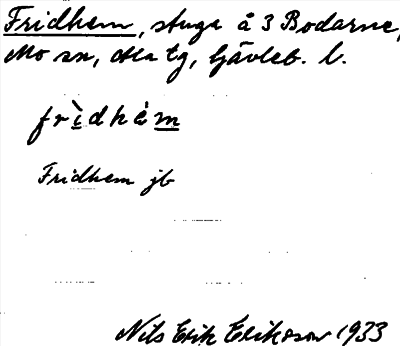 Fridhem, stuga å 3 Bodarne,
Mo sn, Ala tg, Gävleb. l.
frìdhèm
Fridhem jb
Nils Erik Eriksson 1933